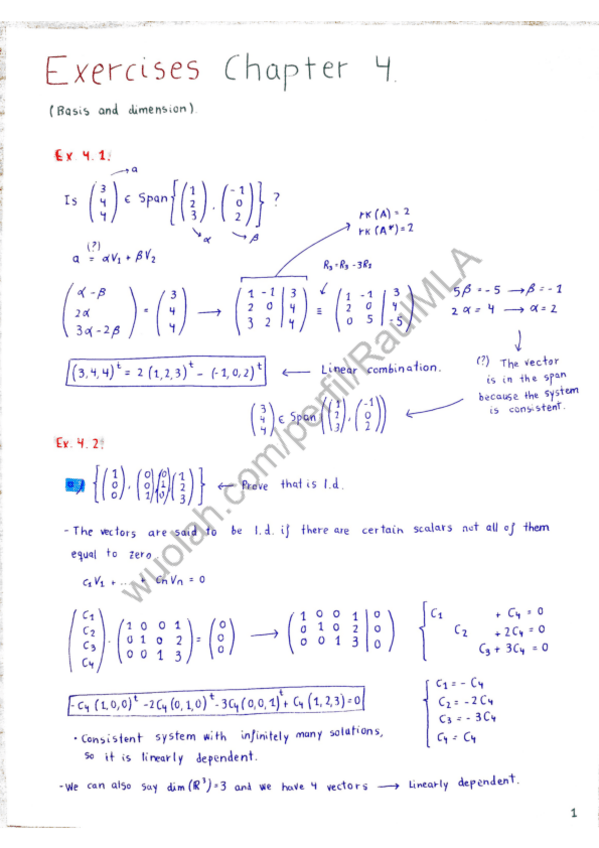 Exercises Chapter 4.
(Basis and dimension).
Ex. 4.1:
Is (3 4 4) ∈ Span{(1 2 3), (-1 0 2)} ?
→ a
→ α → β
rk(A) = 2
rk(A*) = 2
(?)
a = αV₁ + βV₂
R₃ = R₃ - 3R₂
(α - β, 2α, 3α - 2β) = (3 4 4) → (1 -1 | 3, 2 0 | 4, 3 2 | 4) ≡ (1 -1 | 3, 2 0 | 4, 0 5 | -5)
5β = -5 → β = -1
2α = 4 → α = 2
(3,4,4)ᵗ = 2 (1,2,3)ᵗ - (-1,0,2)ᵗ ← Linear combination.
(?) The vector
is in the span
because the system
is consistent.
(3 4 4) ∈ Span{(1 2 3), (-1 0 2)}
Ex. 4.2:
{(1 0 0), (0 0 1), (0 1 0), (1 2 3)} ← Prove that is l.d.
- The vectors are said to be l.d. if there are certain scalars not all of them
equal to zero.
c₁V₁ + ... + cₙVₙ = 0
(C₁ C₂ C₃ C₄) · (1 0 0 1, 0 1 0 2, 0 0 1 3) = (0 0 0) → (1 0 0 1 | 0, 0 1 0 2 | 0, 0 0 1 3 | 0)
C₁ + C₄ = 0
C₂ + 2C₄ = 0
C₃ + 3C₄ = 0
-C₄ (1,0,0)ᵗ - 2C₄ (0,1,0)ᵗ - 3C₄ (0,0,1)ᵗ + C₄ (1,2,3) = 0
C₁ = - C₄
C₂ = - 2C₄
C₃ = - 3C₄
C₄ = C₄
· Consistent system with infinitely many solutions,
so it is linearly dependent.
- We can also say dim(R³) = 3 and we have 4 vectors → Linearly dependent.
1
wuolah.com/perfil/RaulMLA